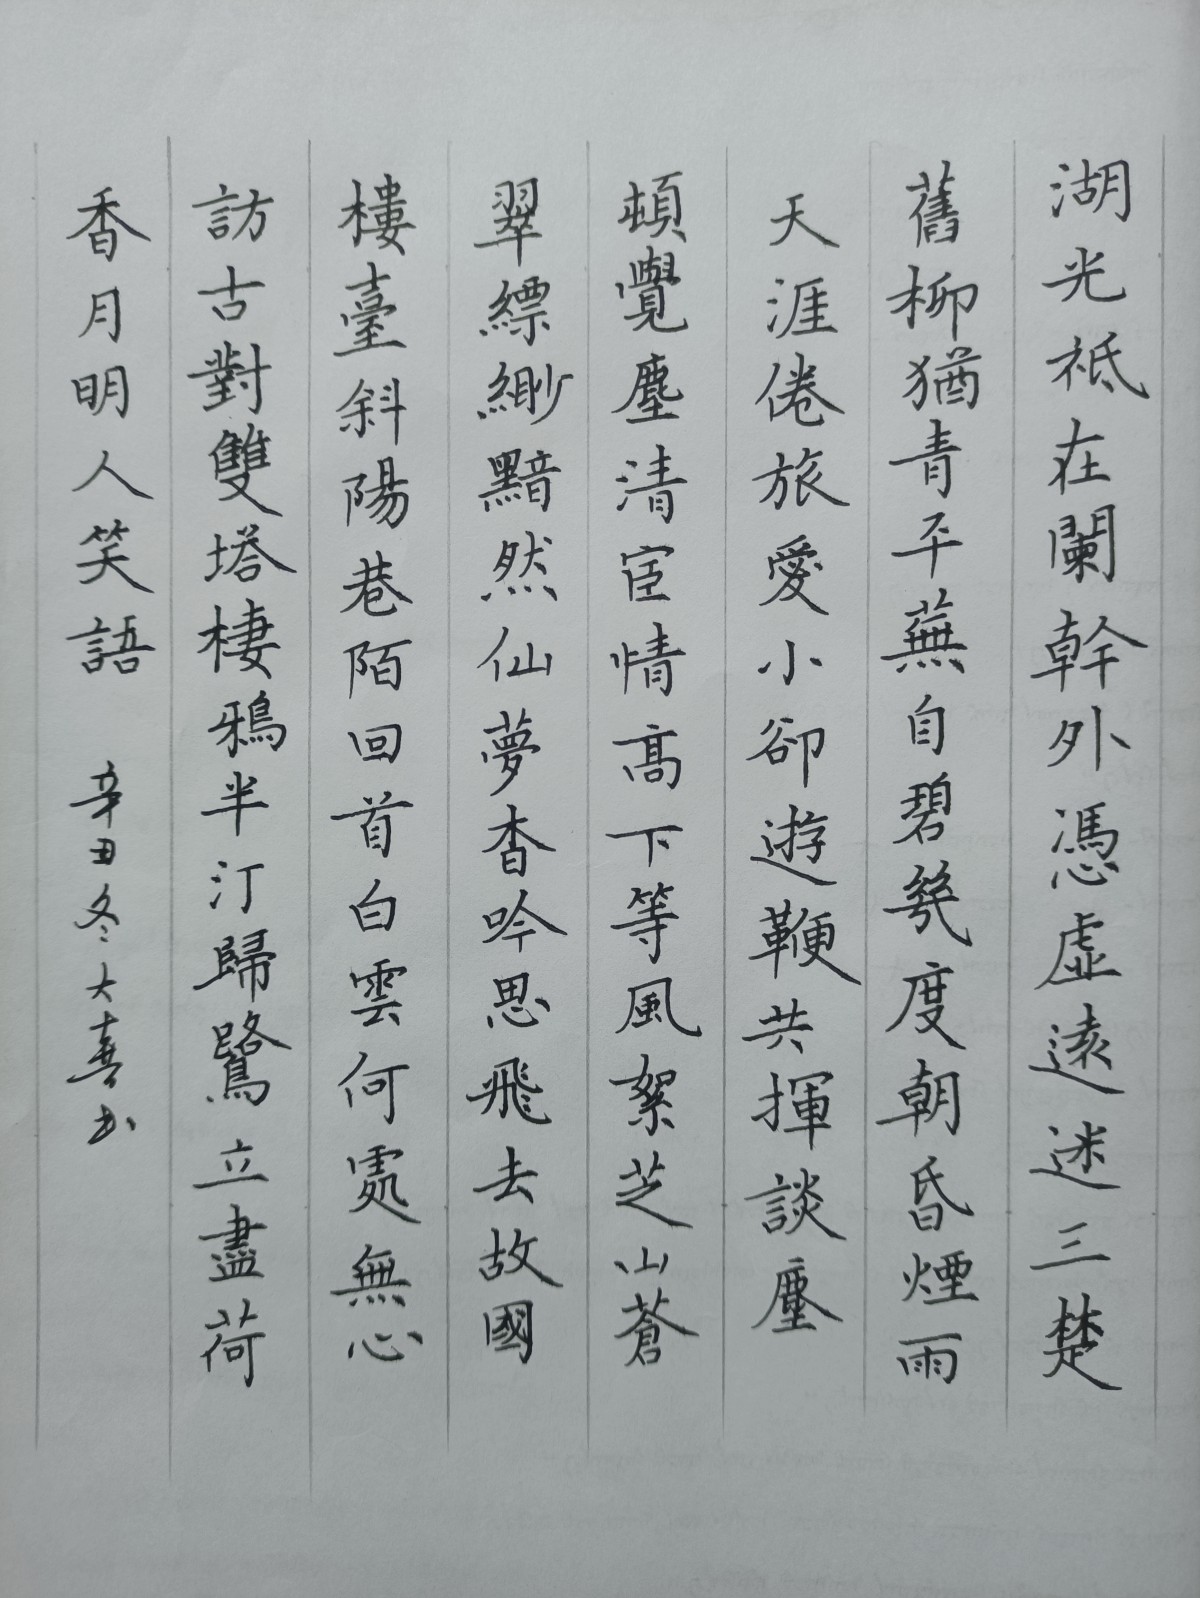 湖光祗在闌幹外憑虛遠迷三楚
舊柳猶青平蕪自碧幾度朝昏煙雨
天涯倦旅愛小卻遊鞭共揮談麈
頓覺塵清宦情高下等風絮芝山蒼
翠縹緲黯然仙夢杳吟思飛去故國
樓臺斜陽巷陌回首白雲何處無心
訪古對雙塔棲鴉半汀歸鷺立盡荷
香月明人笑語 辛丑冬大喜书